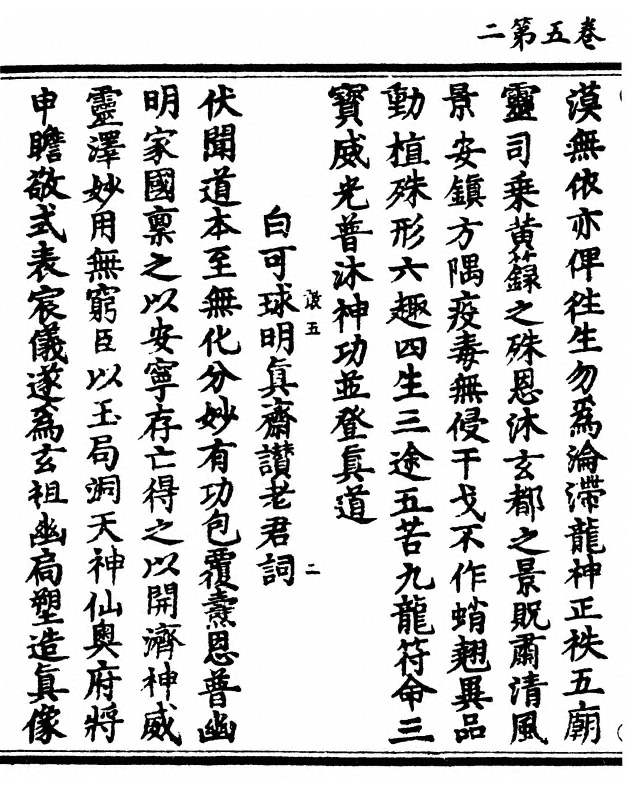 卷五第二
漠無依亦俾徃生勿爲淪滯龍神正秩五廟
靈司乗黄籙之殊恩沐玄都之景貺肅清風
景安鎮方隅疫毒無侵干戈不作蛸翹異品
動植殊形六趣四生三途五苦九龍符命三
寶威光普沐神功並登眞道
白可球明眞齋讃老君詞 二
伏聞道本至無化分妙有功包覆燾恩普幽
明家國稟之以安寧存亡得之以開濟神威
靈澤妙用無窮臣以玉局洞天神仙奥府將
申瞻敬式表宸儀遂爲玄祖幽扃塑造眞像